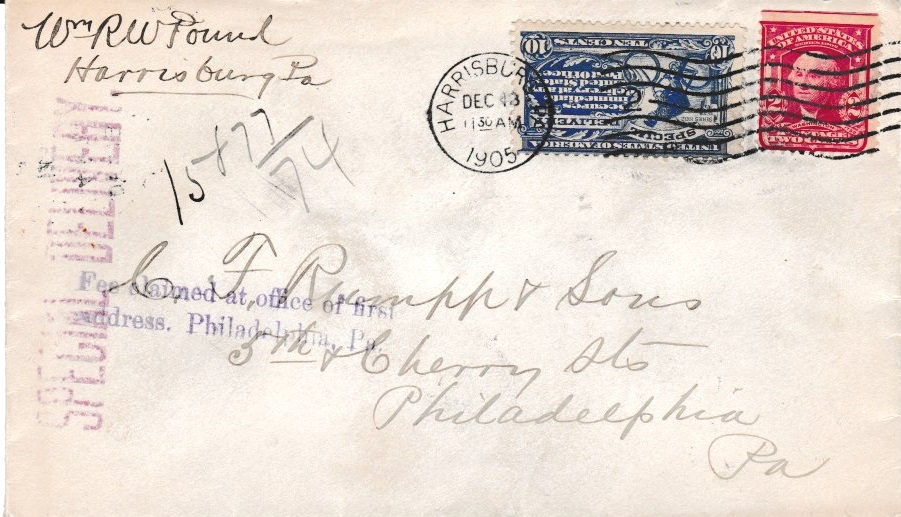 Wm R W Pound
Harrisburg Pa
HARRISBURG
DEC 13
11 30 AM
1905
UNITED STATES OF AMERICA
SPECIAL
TEN CENTS
10 10
UNITED STATES
OF AMERICA
2 2
TWO CENTS
SPECIAL DELIVERY
15477
174
Fee claimed at office of first
address. Philadelphia, Pa.
C. F. Rumpp & Sons
5th & Cherry Sts
Philadelphia
Pa